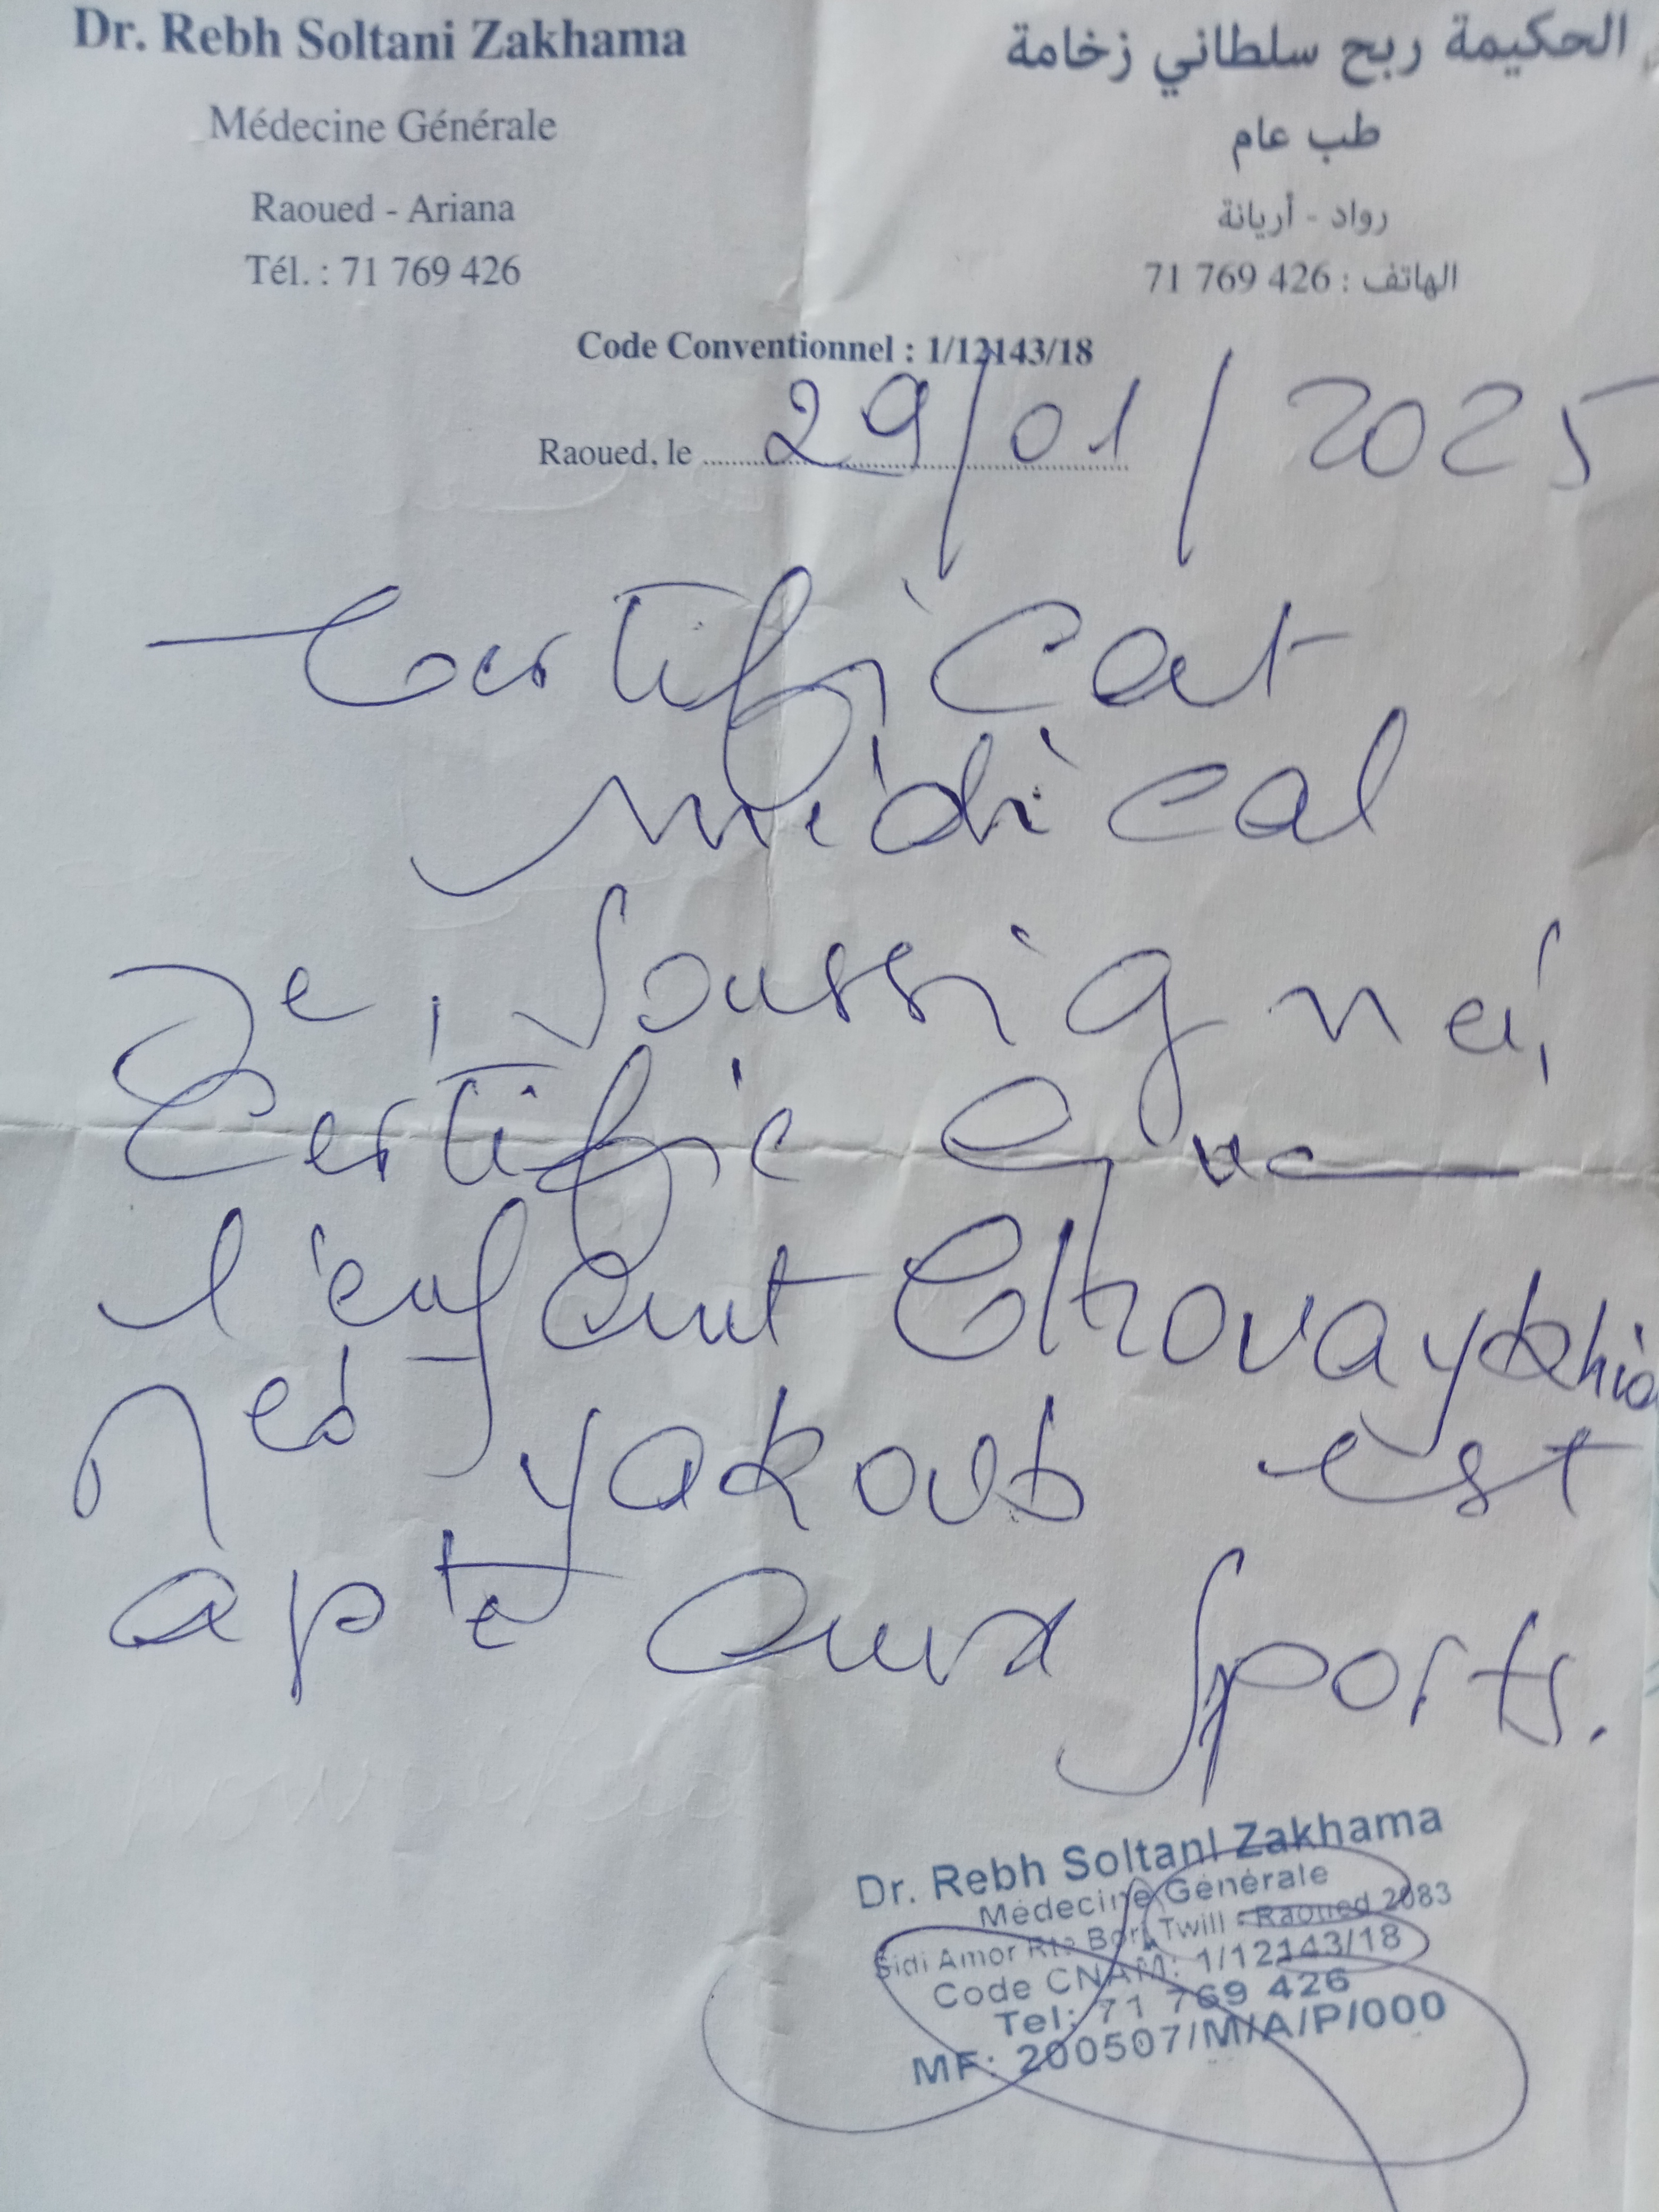 Dr. Rebh Soltani Zakhama
Médecine Générale
Raoued - Ariana
Tél. : 71 769 426
الحكيمة ربح سلطاني زخامة
طب عام
رواد - أريانة
الهاتف : 426 769 71
Code Conventionnel : 1/12143/18
Raoued, le 29/01/2025
Certificat
médical
Je, soussigné,
certifie que
l'enfant
yakoub est
apte aux sports.
Dr. Rebh Soltani Zakhama
Médecine Générale
Sidi Amor Rte Borj Twill - Raoued 2083
Code CNAM: 1/12143/18
Tel: 71 769 426
MF: 200507/M/A/P/000